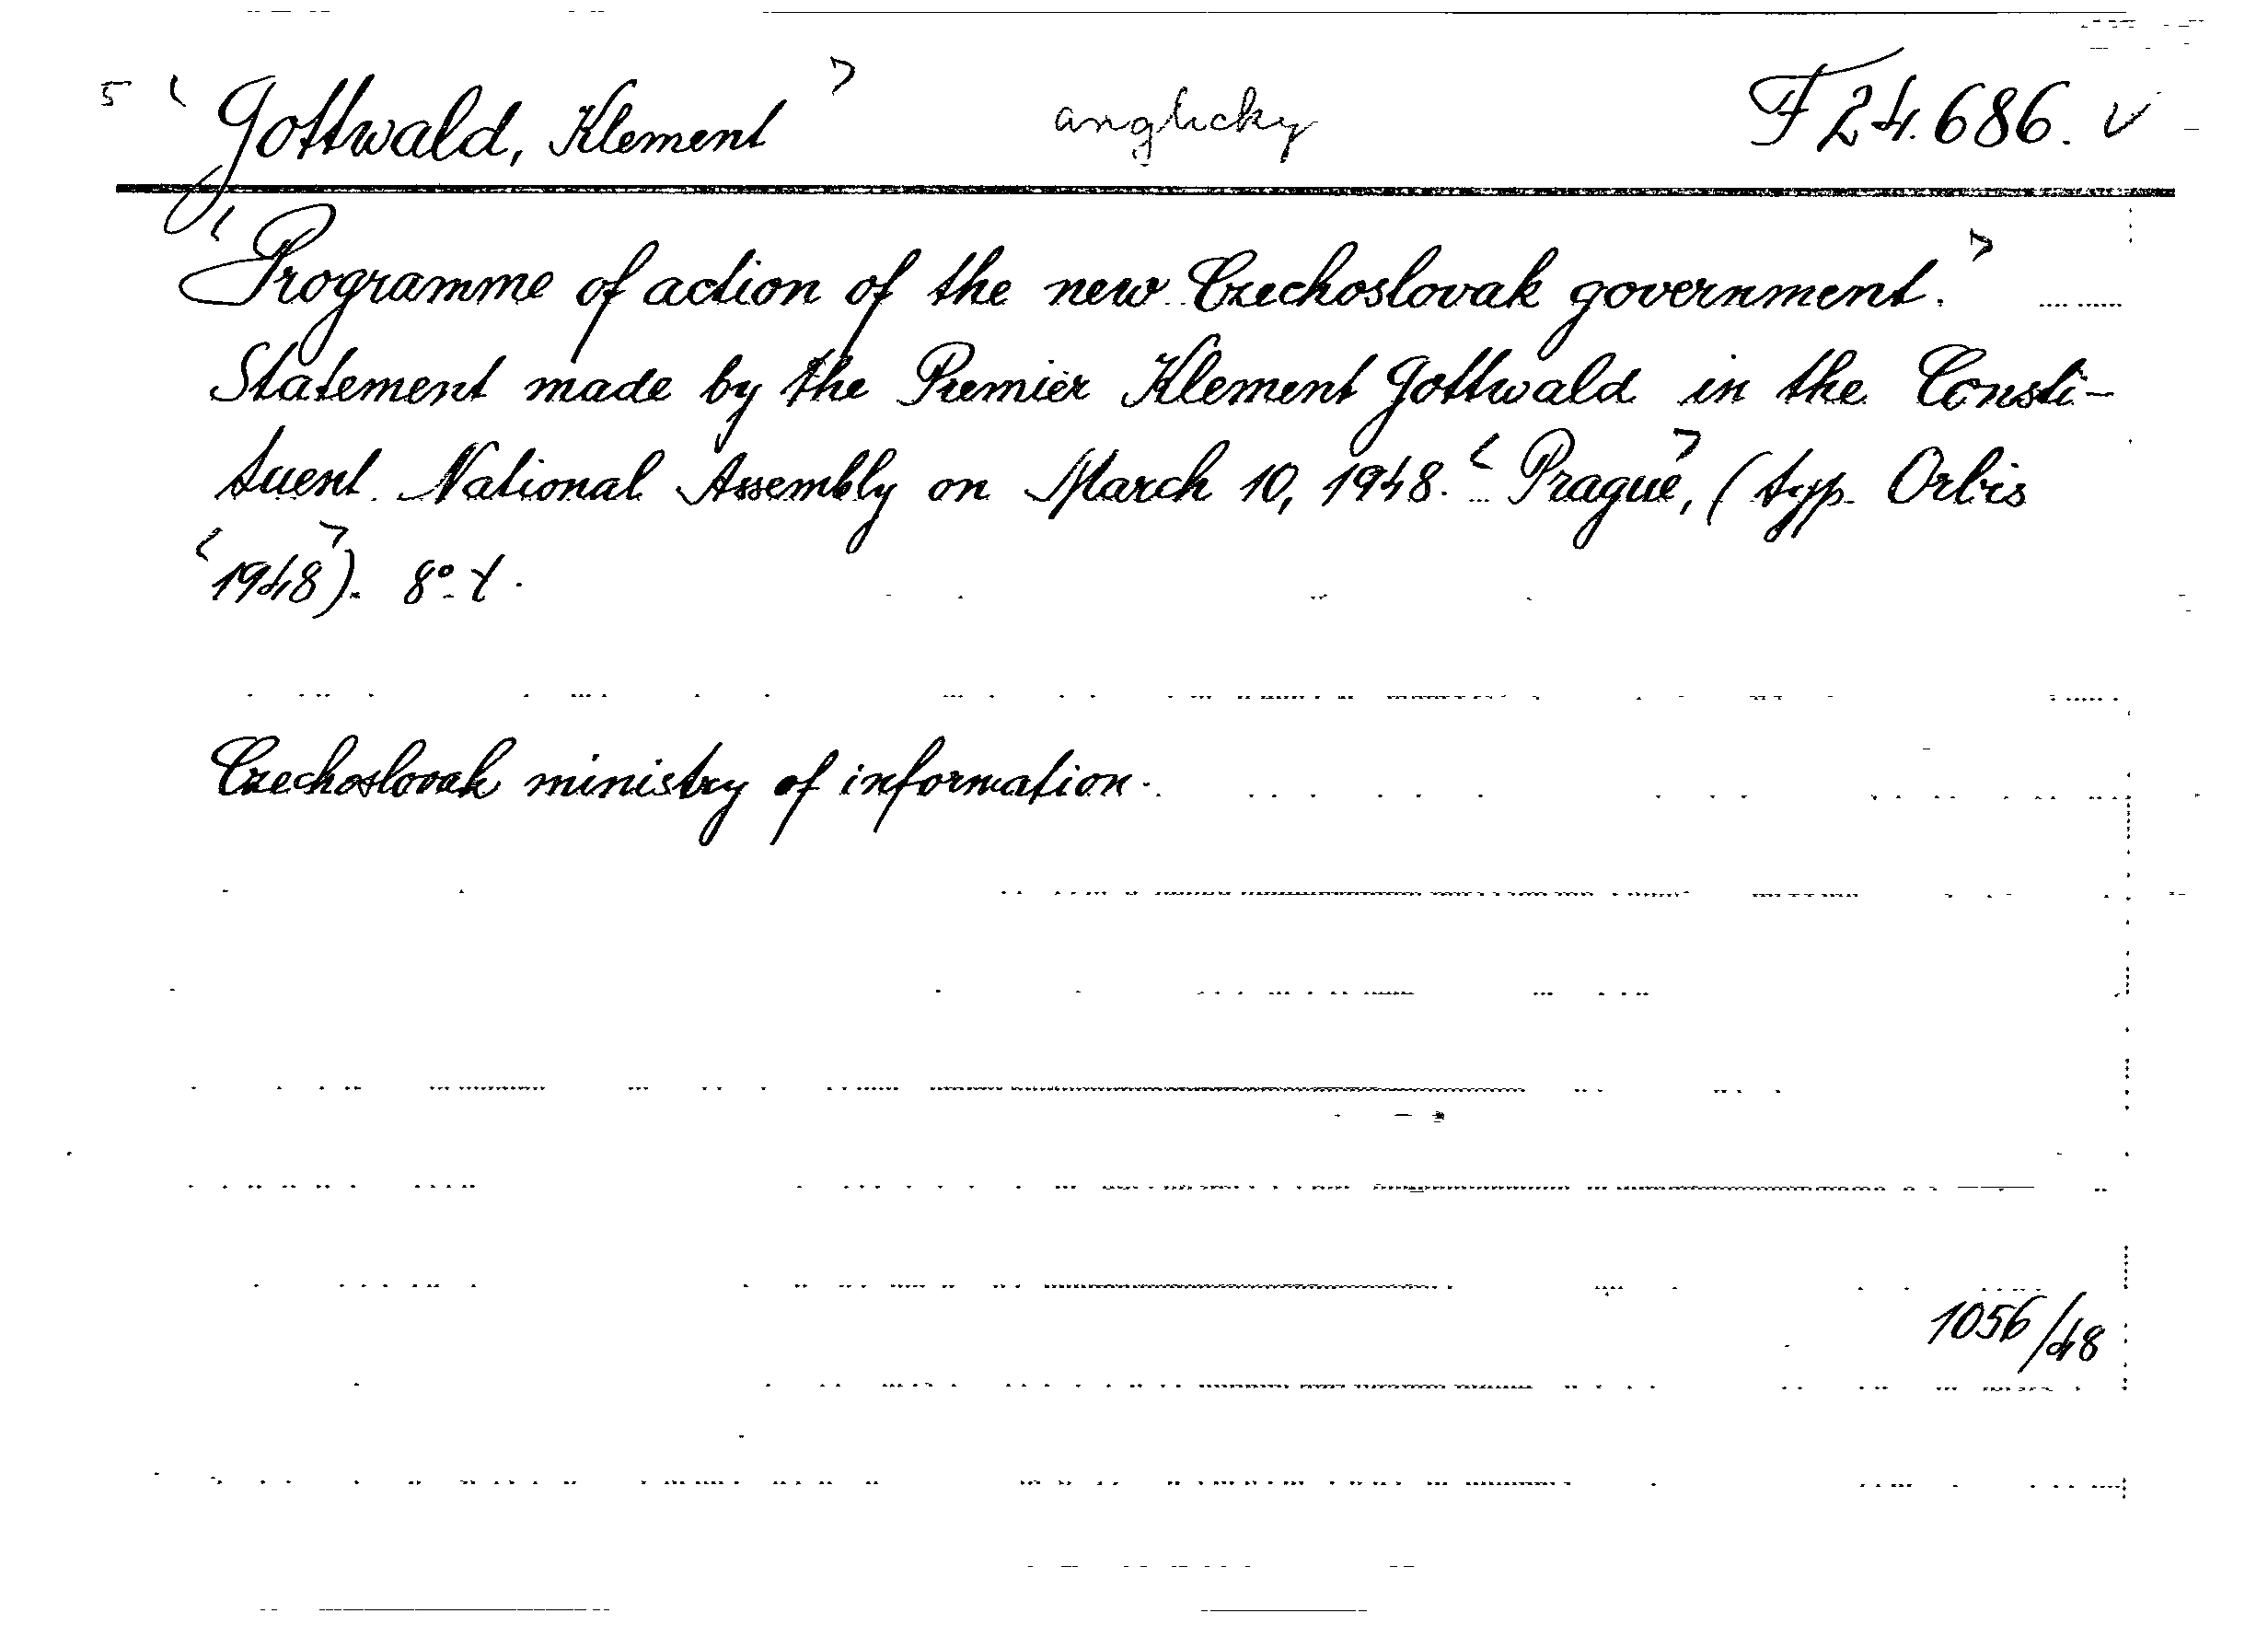 5 < Gottwald, Klement > anglicky F 24.686. v
< Programme of action of the new Czechoslovak government. >
Statement made by the Premier Klement Gottwald in the Consti-
tuent National Assembly on March 10, 1948. < Prague >, (typ. Orbis
< 1948 >). 8°.
Czechoslovak ministry of information.
1056/48